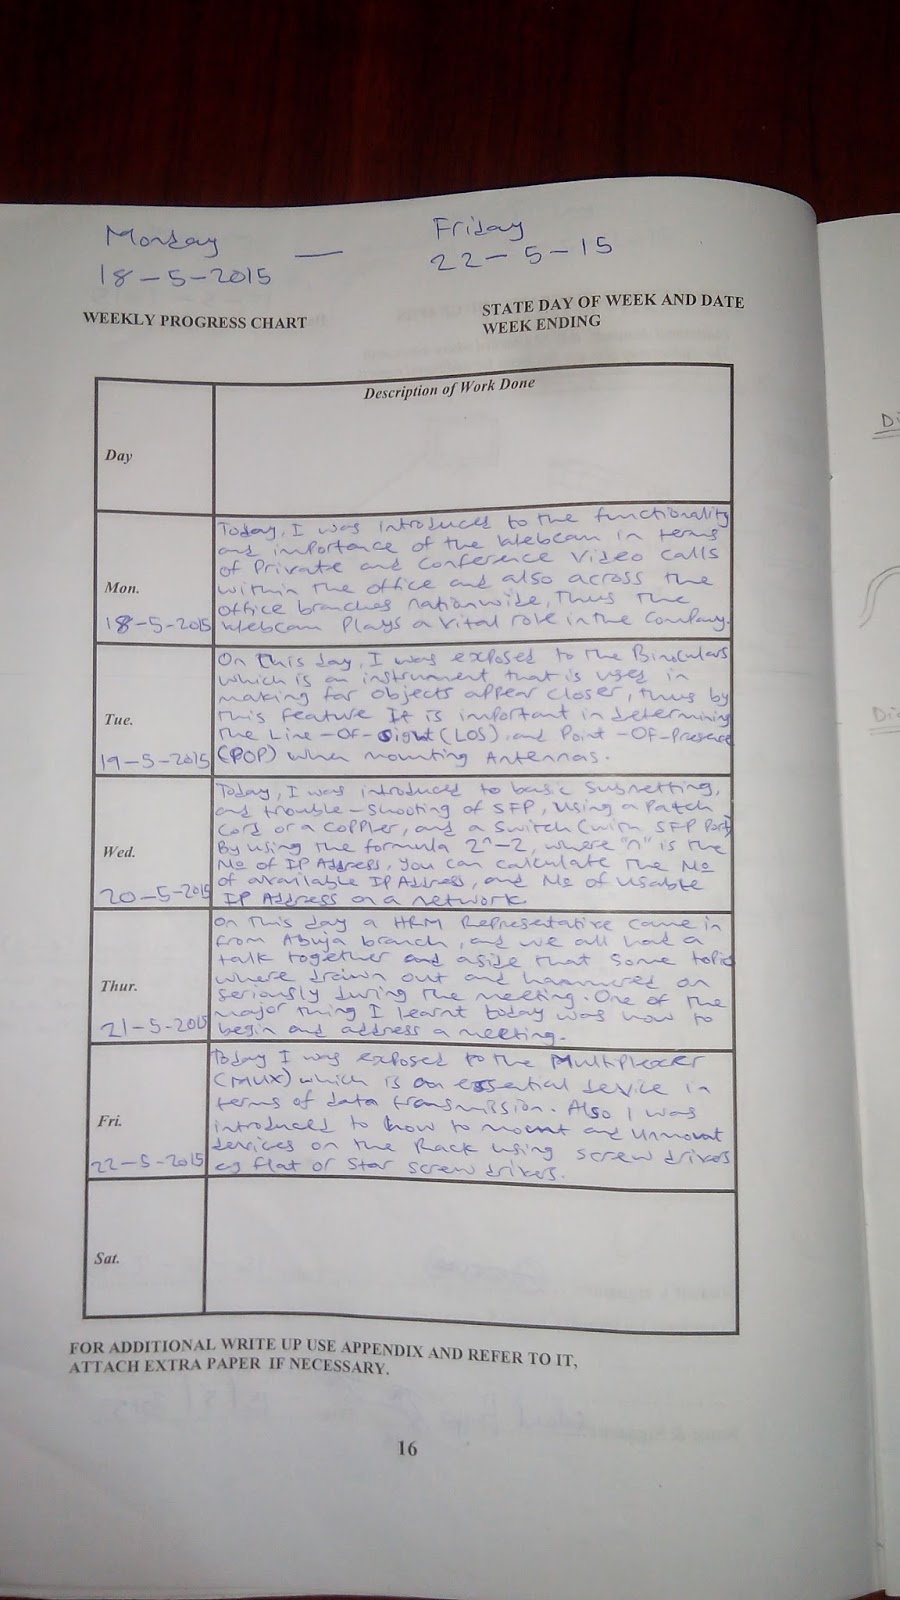 Monday — Friday
18-5-2015 22-5-15
WEEKLY PROGRESS CHART
STATE DAY OF WEEK AND DATE
WEEK ENDING
Day
Description of Work Done
Mon.
18-5-2015
Today, I was introduced to the functionality
and importance of the Webcam in terms
of Private and Conference Video calls
within the office and also across the
office branches nationwide, thus the
Webcam plays a vital role in the Company.
Tue.
19-5-2015
On this day, I was exposed to the Binoculars
which is an instrument that is used in
making far objects appear closer, thus by
this feature It is important in determining
the Line-OF-Sight (LOS), and Point-OF-Presence
(POP) when mounting Antennas.
Wed.
20-5-2015
Today, I was introduced to basic Subnetting,
and trouble-shooting of SFP, Using a Patch
Cord or a Coppler, and a Switch (with SFP Port)
By using the formula 2ⁿ-2, where "n" is the
No of IP Address, you can calculate the No
of available IP Address, and No of usable
IP Address on a network.
Thur.
21-5-2015
On this day a HRM Representative came in
from Abuja branch, and we all had a
talk together and aside that some topic
where drawn out and hammered on
seriously during the meeting. One of the
major thing I learnt today was how to
begin and address a meeting.
Fri.
22-5-2015
Today I was exposed to the Multiplexer
(MUX) which is an essential device in
terms of data transmission. Also I was
introduced to how to mount and Unmount
devices on the Rack using screw drivers
eg flat or Star screw drivers.
Sat.
FOR ADDITIONAL WRITE UP USE APPENDIX AND REFER TO IT,
ATTACH EXTRA PAPER IF NECESSARY.
16